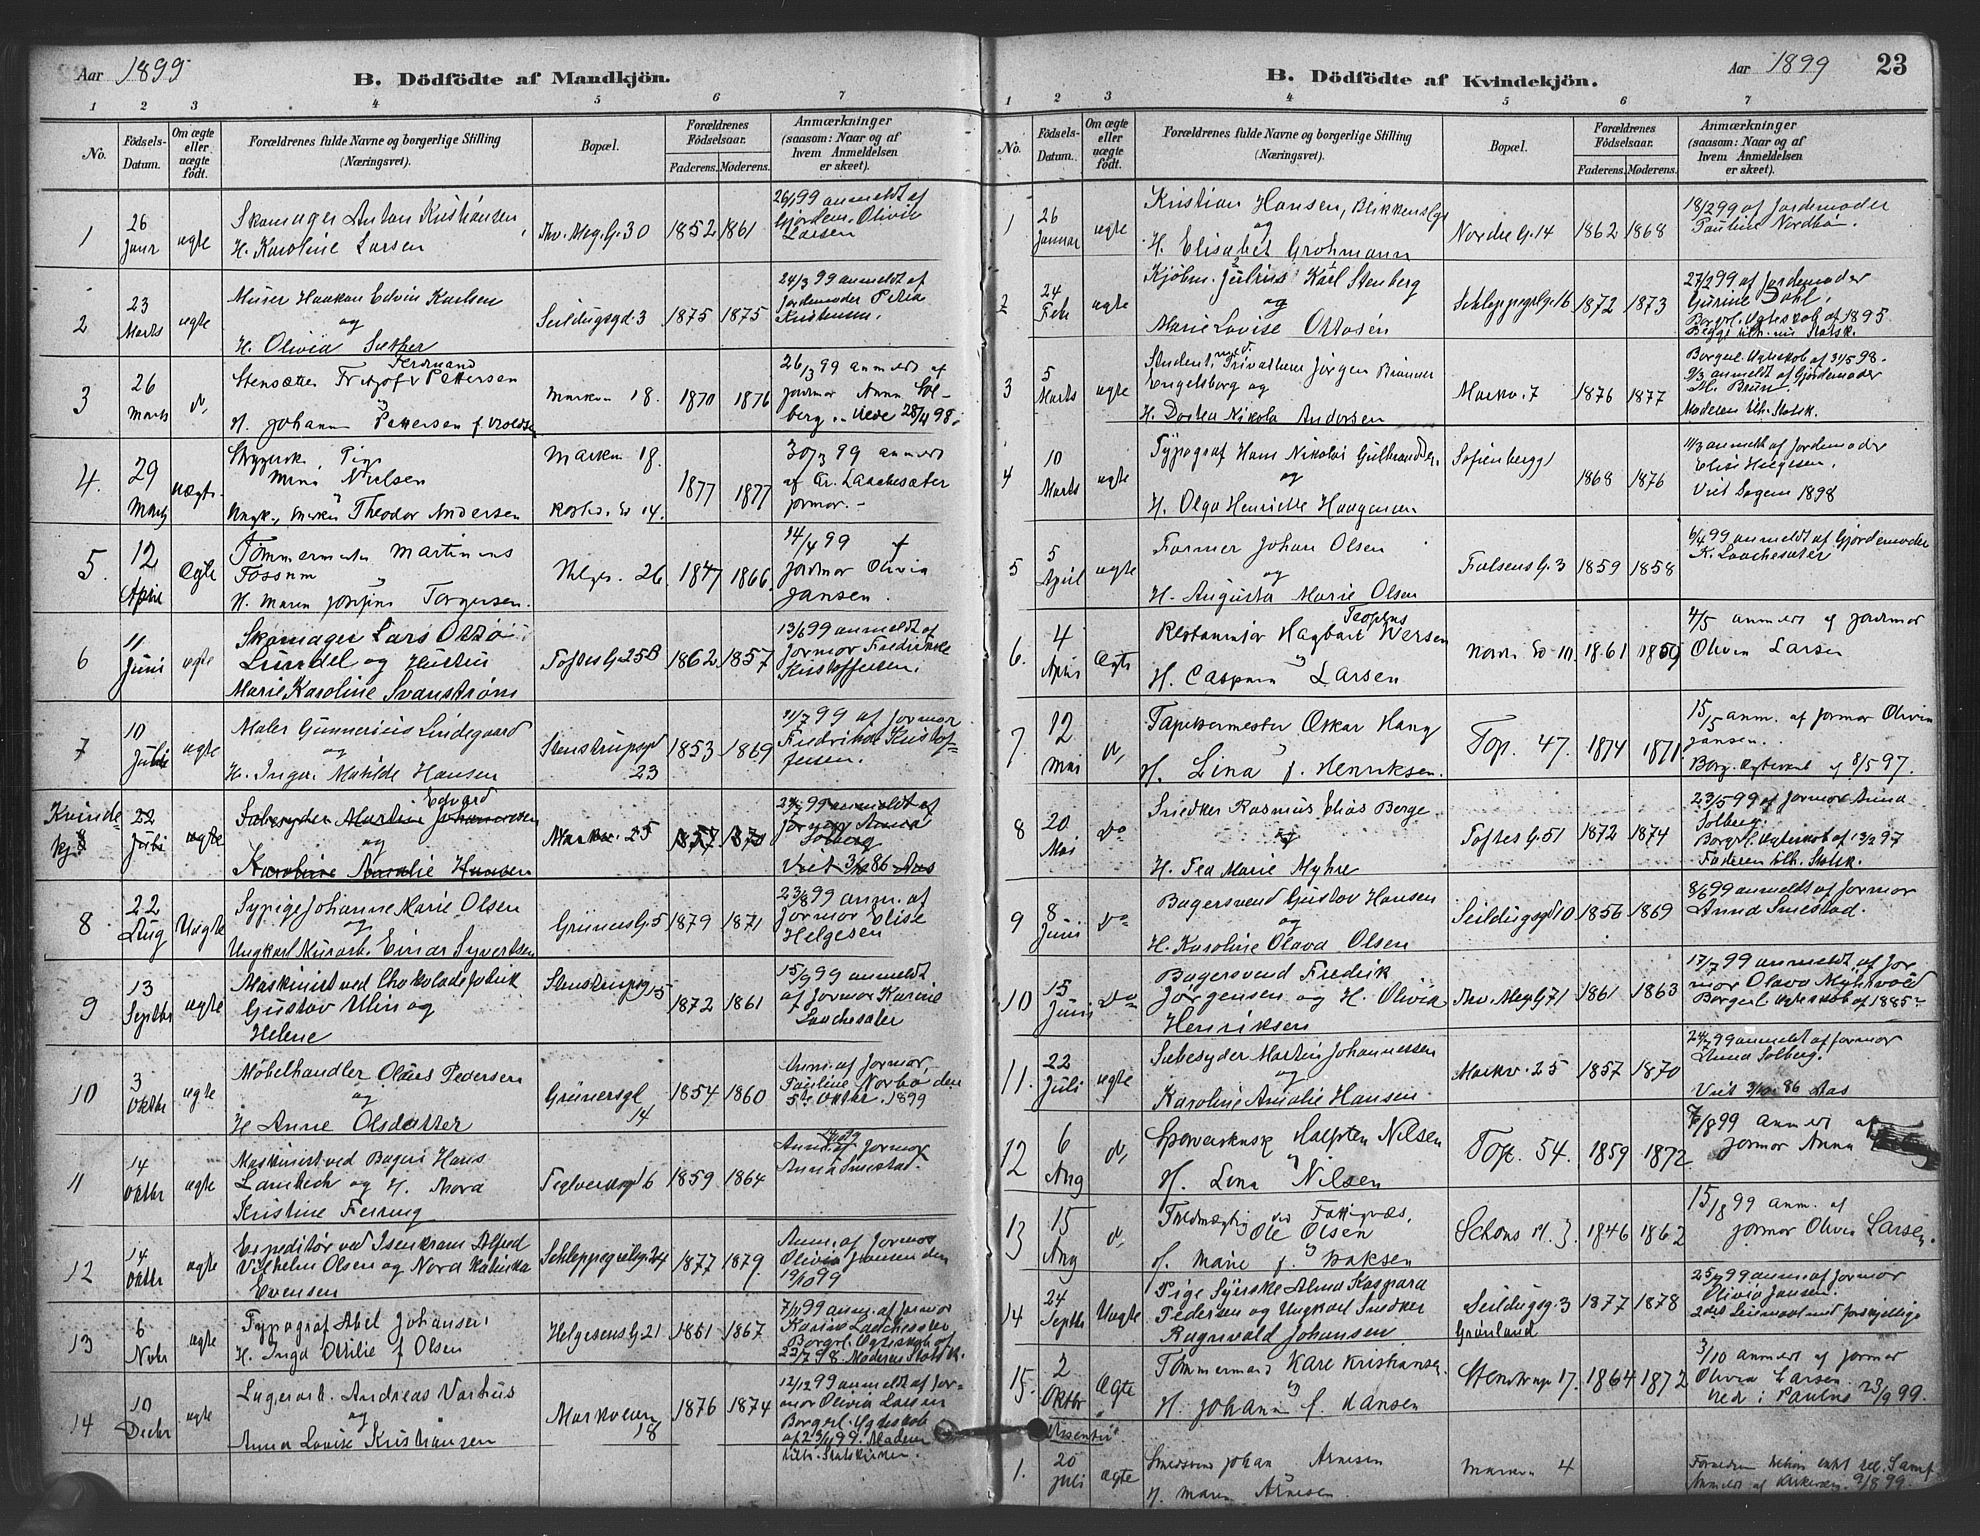 Aar 1899
B. Dödfödte af Mandkjön.
1 2 3 4 5 6 7
No.
Födsels-Datum.
Om ægte eller uægte födt.
Forældrenes fulde Navne og borgerlige Stilling (Næringsvei).
Bopæl.
Forældrenes Födselsaar.
Faderens. Moderens.
Anmærkninger (saasom: Naar og af hvem Anmeldelsen er skeet).
1 26 Janr ægte
Skomager Anton Kristiansen,
H. Karoline Larsen
30 1852 1861
26/1 99 anmeldt af
Gjordem. Olivia
Larsen
2 23 Marts ægte
Murer Haakon Edvin Karlsen
og
H. Olivia Sæther
Seildugsgd. 3 1875 1875
24/3 99 anmeldt af
Jordemoder Petra
Kristensen.
3 26 Marts do
Ferdinand
Stensætter Fritjof Pettersen
og
H. Johanna Pettersen f.
Markv 18. 1870 1876
26/3 99 anmeldt af
Jormor Anna Sol-
berg.
4. 29 Marts uægte
Pige
Mina Nielsen
og
Theodor Andersen
Markv 18.
14. 1877 1877
30/3 99 anmeldt
af Laachesæter
jormor.
5. 12 April Ægte
Tømmermester Martinius
Fossum og
H. Maren Josefine Torgersen.
Helges. 26 1847 1866
14/4 99
Jormor Olivia
Jansen.
6 11 Juni ægte
Skomager Lars Otto
Lundel og Hustru
Marie Karoline Svanstrøm
Toftes G. 25B 1862 1857
13/6 99 anmeldt af
Jormor Fredrikke
Kristoffersen.
7 10 Juli ægte
Maler Gunnerius Lindegaard
og
H. Inger Matilde Hansen
Stenstrupsgd 23 1853 1869
11/7 99 af Jormor
Fredrikke Kristof-
fersen.
Kvinde kj. 22 Juli ægte
Edvard
Sæbesyder Martin Johannessen
og
Karoline Amalie Hansen
Markv. 25 1857 1870
24/7 99 anmeldt af
Jormor Anna
Solberg
Viet 3/10 86 Aas
8 22 Aug Uægte
Sypige Johanne Marie Olsen
Ungkarl Murarb. Einar Syvertsen
Grüners G. 5 1879 1871
23/8 99 anm. af
Jormor Elise
Helgesen
9 13 Septbr ægte
Maskinist ved Chokoladefabrik
Gustav Ulin og
Helene
Stenstrupsg 15 1872 1861
15/9 99 anmeldt
af Jormor Karine
Laachesæter
10 3 Oktbr ægte
Møbelhandler Olaus Pedersen
og
H Anne Olsdatter
Grünersgt 14 1854 1860
Anm. af Jormor
Pauline Norbø den
5te Oktbr. 1899
11 14 Oktbr ægte
Maskinist ved Bageri Hans
Lambech og H. Thora
Kristine Feiring
Teglverksgt 6 1859 1864
Anm. af Jormor
Anna Smestad.
12 14 Oktbr ægte
Expeditør ved Isenkram Alfred
Vilhelm Olsen og Nora Katinka
Evensen
Schleppegrellsg. 24 1877 1879
Anm. af Jormor
Olivia Jansen den
19/10 99
13 6 Nvbr ægte
Typograf Abel Johansen
H. Inga Ottilie f Olsen
Helgesens G. 21 1861 1867
7/11 99 anm. af Jormor
Karine Laachesæter
Borgrl. Ægteskab af
22/7 98. Moderen Statsk.
14 10 Decbr ægte
Lagerarb. Andreas Varhus
og
Anna Lovise Kristiansen
Markveien 18 1876 1874
12/12 99 anmeldt af Jor-
mor Olivia Larsen
Borgerl. Ægteskab
af 23/11 99. Moderen
tilh. Statskirken.
B. Dödfödte af Kvindekjön.
Aar 1899 23
1 2 3 4 5 6 7
No.
Födsels-Datum.
Om ægte eller uægte födt.
Forældrenes fulde Navne og borgerlige Stilling (Næringsvei).
Bopæl.
Forældrenes Födselsaar.
Faderens. Moderens.
Anmærkninger (saasom: Naar og af hvem Anmeldelsen er skeet).
1 26 Januar ægte
Kristian Hansen, Blikkensl.
og
H. Elisabet Grohmann
Nordre G. 14 1862 1868
18/2 99 af Jordemoder
Pauline Nordbøe.
2 24 Febr ægte
Kjøbm. Julius Karl Stenberg
og
Marie Lovise Ottosen
Schleppegrlg. 16 1872 1873
27/2 99 af Jordemoder
Gurine Dahl,
Borgrl. Ægteskab af 1895
Begge tilh. Statsk.
3 5 Marts ægte
Student, Privatlærer Jørgen Brunner
Engelsborg og
H. Dortea Nikola Andersen
Markv. 7 1876 1877
Borgerl. Ægteskab af 31/5 98.
9/3 anmeldt af Gjordemoder
M. Bruu.
Moderen tilh. Statsk.
4 10 Marts ægte
Typograf Hans Nikolai Gulbrandsen
og
H. Olga Henriette Haagman
Sofienberggt 1868 1876
11/3 anmeldt af Jordemoder
Elise Helgesen.
Viet 1898
5 5 April ægte
Former Johan Olsen
og
H. Augusta Marie Olsen
Falsens G. 3 1859 1858
6/4 99 anmeldt af Gjordemoder
K. Laachesæter
6. 4 Ægte
Hagbart Iversen
og
H. Larsen
1861 1859
4/5 anmeldt af Jordmor
Olivia Larsen
7. 12 Mai do
Tapetsermester Oskar Haug
og
H. Lina f. Henriksen.
Top. 47. 1874 1871.
15/5 anm. af jormor Olivia
Jansen.
Borg. Ægteskab af 8/5 97.
8 20 Mai do
Snedker Rasmus Elias Berge
og
H. Tea Marie Myhre
Toftes G. 51 1872 1874
23/5 99 af Jormor Anna
Solberg.
Borgerl. Ægteskab af 97
Faderen tilh. Statsk.
9 8 Juni do
Bagersvend Gustav Hansen
og
H. Karoline Olava Olsen
Seildugsgd 10 1856 1869
8/6 99 anmeldt af Jormor
Anna Smestad.
10 15 Juni do
Bagersvend Fredrik
Jørgensen og H. Olivia
Henriksen
71 1861 1863
17/7 99 anmeldt af Jor
mor Olava Myhrvold
Borgerl. Ægteskab af 1885
11. 22 Juli ægte
Sæbesyder Martin Johannessen
og
Karoline Amalie Hansen
Markv. 25 1857 1870
24/7 99 anmeldt af Jormor
Anna Solberg.
Viet 3/10 86 Aas
12 6 Aug do
Halfsten Nilsen
og
H. Lina Nilsen
Top. 54. 1859 1872
7/8 99 anmeldt af
Jormor Anna
13 15 Aug do
Fuldmægtig ved Fattigvæs.
Ole Olsen
og
H. Marie f. Isaksen
Schous Pl. 3. 1846 1862
15/8 99 anm. af
jormor Olivia Larsen.
14 24 Septbr Uægte
Pige Syerske Anna Kaspara
Pedersen og Ungkarl Snedker
Ragnvald Johansen
Seildugsg. 3
Grønland 1877 1878
25/9 99 anm. af Jormor
Olivia Jansen.
15. 2 Oktbr Ægte
Tømmermand Karl Kristiansen
og
H. Johanna f. Hansen
Stenstrup 17. 1864 1872
3/10 anmeldt af jormor
Olivia Larsen.
Viet i Paulus 23/9 99.
Dissenter
1. 20 juli Ægte
Smedsvend Johan Arnesen
H. Maren Arnesen
Markv 4
Anmeldt af 9/8 99.